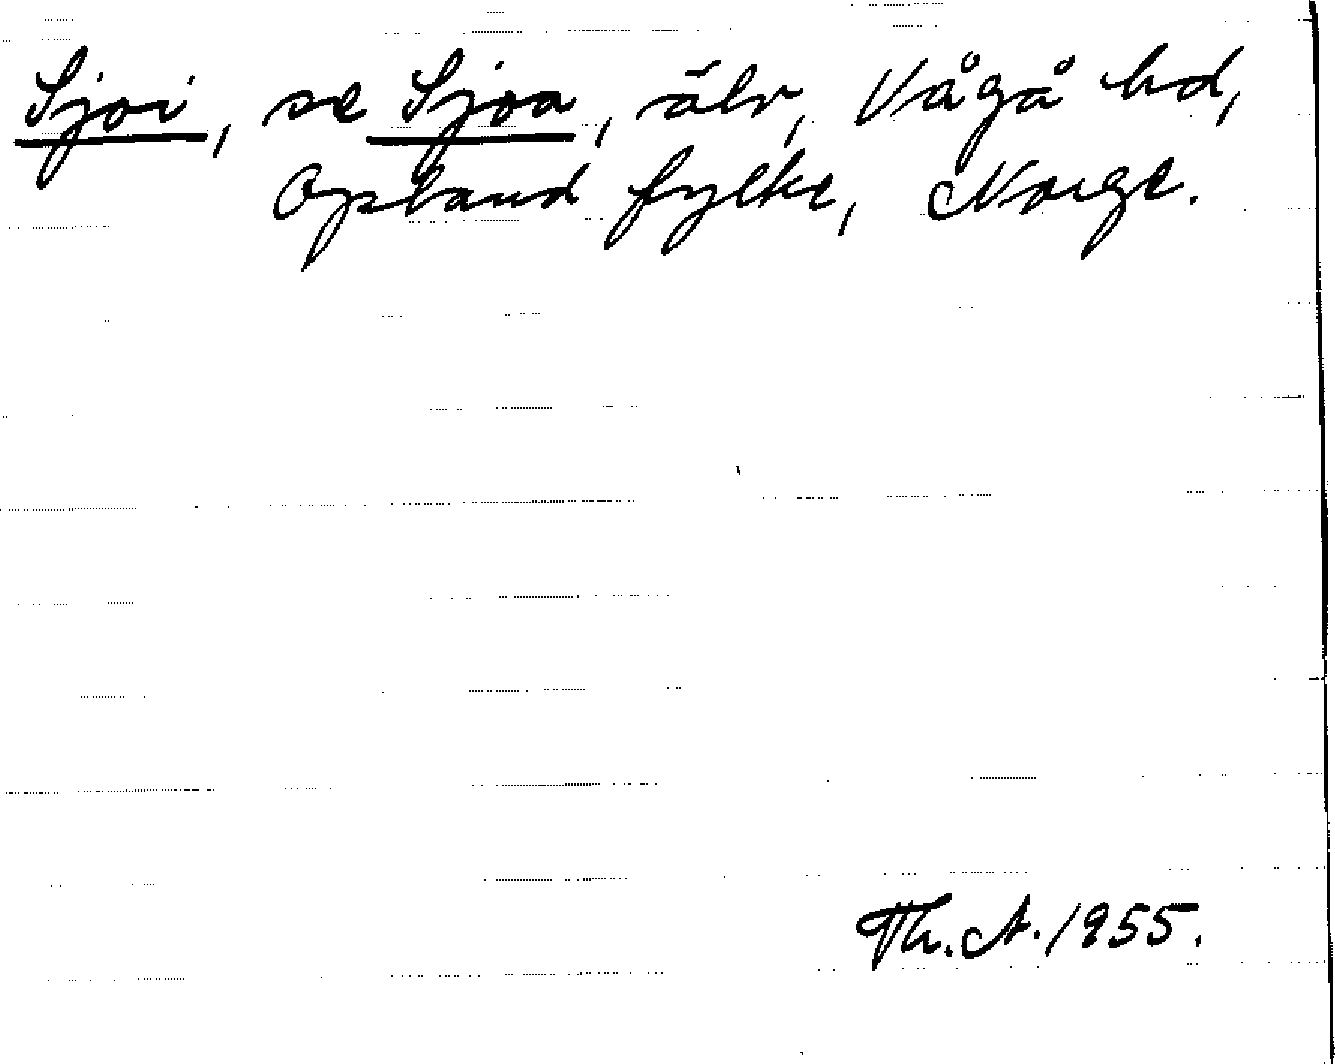 Sjoi, se Sjoa, älv, Vågå hd,
Opland fylke, Norge.
Th. A. 1955.